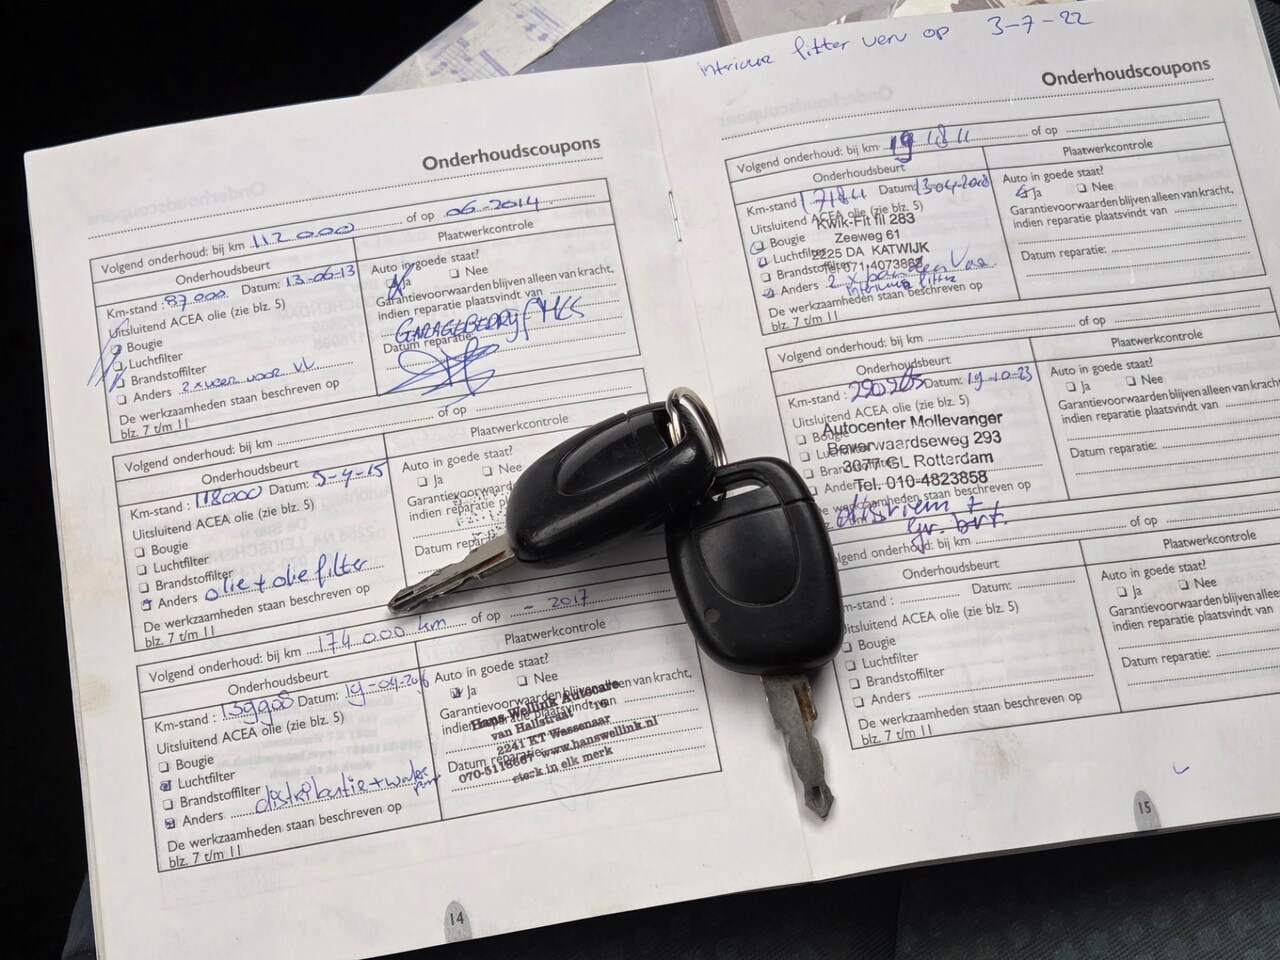 Onderhoudscoupons
Volgend onderhoud: bij km 112000 of op 06-2014
Onderhoudsbeurt
Plaatwerkcontrole
Km-stand : 97000 Datum: 13-06-13
Uitsluitend ACEA olie (zie blz. 5)
Bougie
Luchtfilter
Brandstoffilter
Anders 2x veer voor VV
De werkzaamheden staan beschreven op
blz. 7 t/m 11
Auto in goede staat?
Ja Nee
Garantievoorwaarden blijven alleen van kracht,
indien reparatie plaatsvindt van
GARAGEBEDRYF
Datum reparatie:
Volgend onderhoud: bij km of op
Onderhoudsbeurt
Plaatwerkcontrole
Km-stand : 118000 Datum: 9-4-15
Uitsluitend ACEA olie (zie blz. 5)
Bougie
Luchtfilter
Brandstoffilter
Anders olie + oliefilter
De werkzaamheden staan beschreven op
blz. 7 t/m 11
Auto in goede staat?
Ja Nee
Garantievoorwaarden
indien reparatie
Datum
Volgend onderhoud: bij km 174.000 km of op - 2017
Onderhoudsbeurt
Plaatwerkcontrole
Km-stand : 139908 Datum: 19-04-2016
Uitsluitend ACEA olie (zie blz. 5)
Bougie
Luchtfilter
Brandstoffilter
Anders distributie + water
De werkzaamheden staan beschreven op
blz. 7 t/m 11
Auto in goede staat?
Ja Nee
Garantievoorwaarden blijven alleen van kracht,
indien reparatie plaatsvindt van
Datum reparatie:
Hans Wellink Autocare
van Hallstraat 16
2241 KT Wassenaar
www.hanswellink.nl
sterk in elk merk
14
intrieur filter verv op 3-7-22
Onderhoudscoupons
Volgend onderhoud: bij km of op
Onderhoudsbeurt
Plaatwerkcontrole
Km-stand 171844 Datum: 13-04-2018
Uitsluitend ACEA olie (zie blz. 5)
Bougie
Luchtfilter
Brandstoffilter
Anders
De werkzaamheden staan beschreven op
blz. 7 t/m 11
Kwik-Fit fil 283
Zeeweg 61
2225 DA KATWIJK
Auto in goede staat?
Ja Nee
Garantievoorwaarden blijven alleen van kracht,
indien reparatie plaatsvindt van
Datum reparatie:
Volgend onderhoud: bij km of op
Onderhoudsbeurt
Plaatwerkcontrole
Km-stand : Datum: 19-10-23
Uitsluitend ACEA olie (zie blz. 5)
Autocenter Mollevanger
Beverwaardseweg 293
3077 GL Rotterdam
Tel. 010-4823858
staan beschreven op
gr. brt.
Auto in goede staat?
Ja Nee
Garantievoorwaarden blijven alleen van kracht,
indien reparatie plaatsvindt van
Datum reparatie:
onderhoud: bij km of op
Onderhoudsbeurt
Plaatwerkcontrole
Datum:
ACEA olie (zie blz. 5)
Bougie
Luchtfilter
Brandstoffilter
Anders
De werkzaamheden staan beschreven op
blz. 7 t/m 11
Auto in goede staat?
Ja Nee
Garantievoorwaarden blijven
indien reparatie plaatsvindt van
Datum reparatie:
15